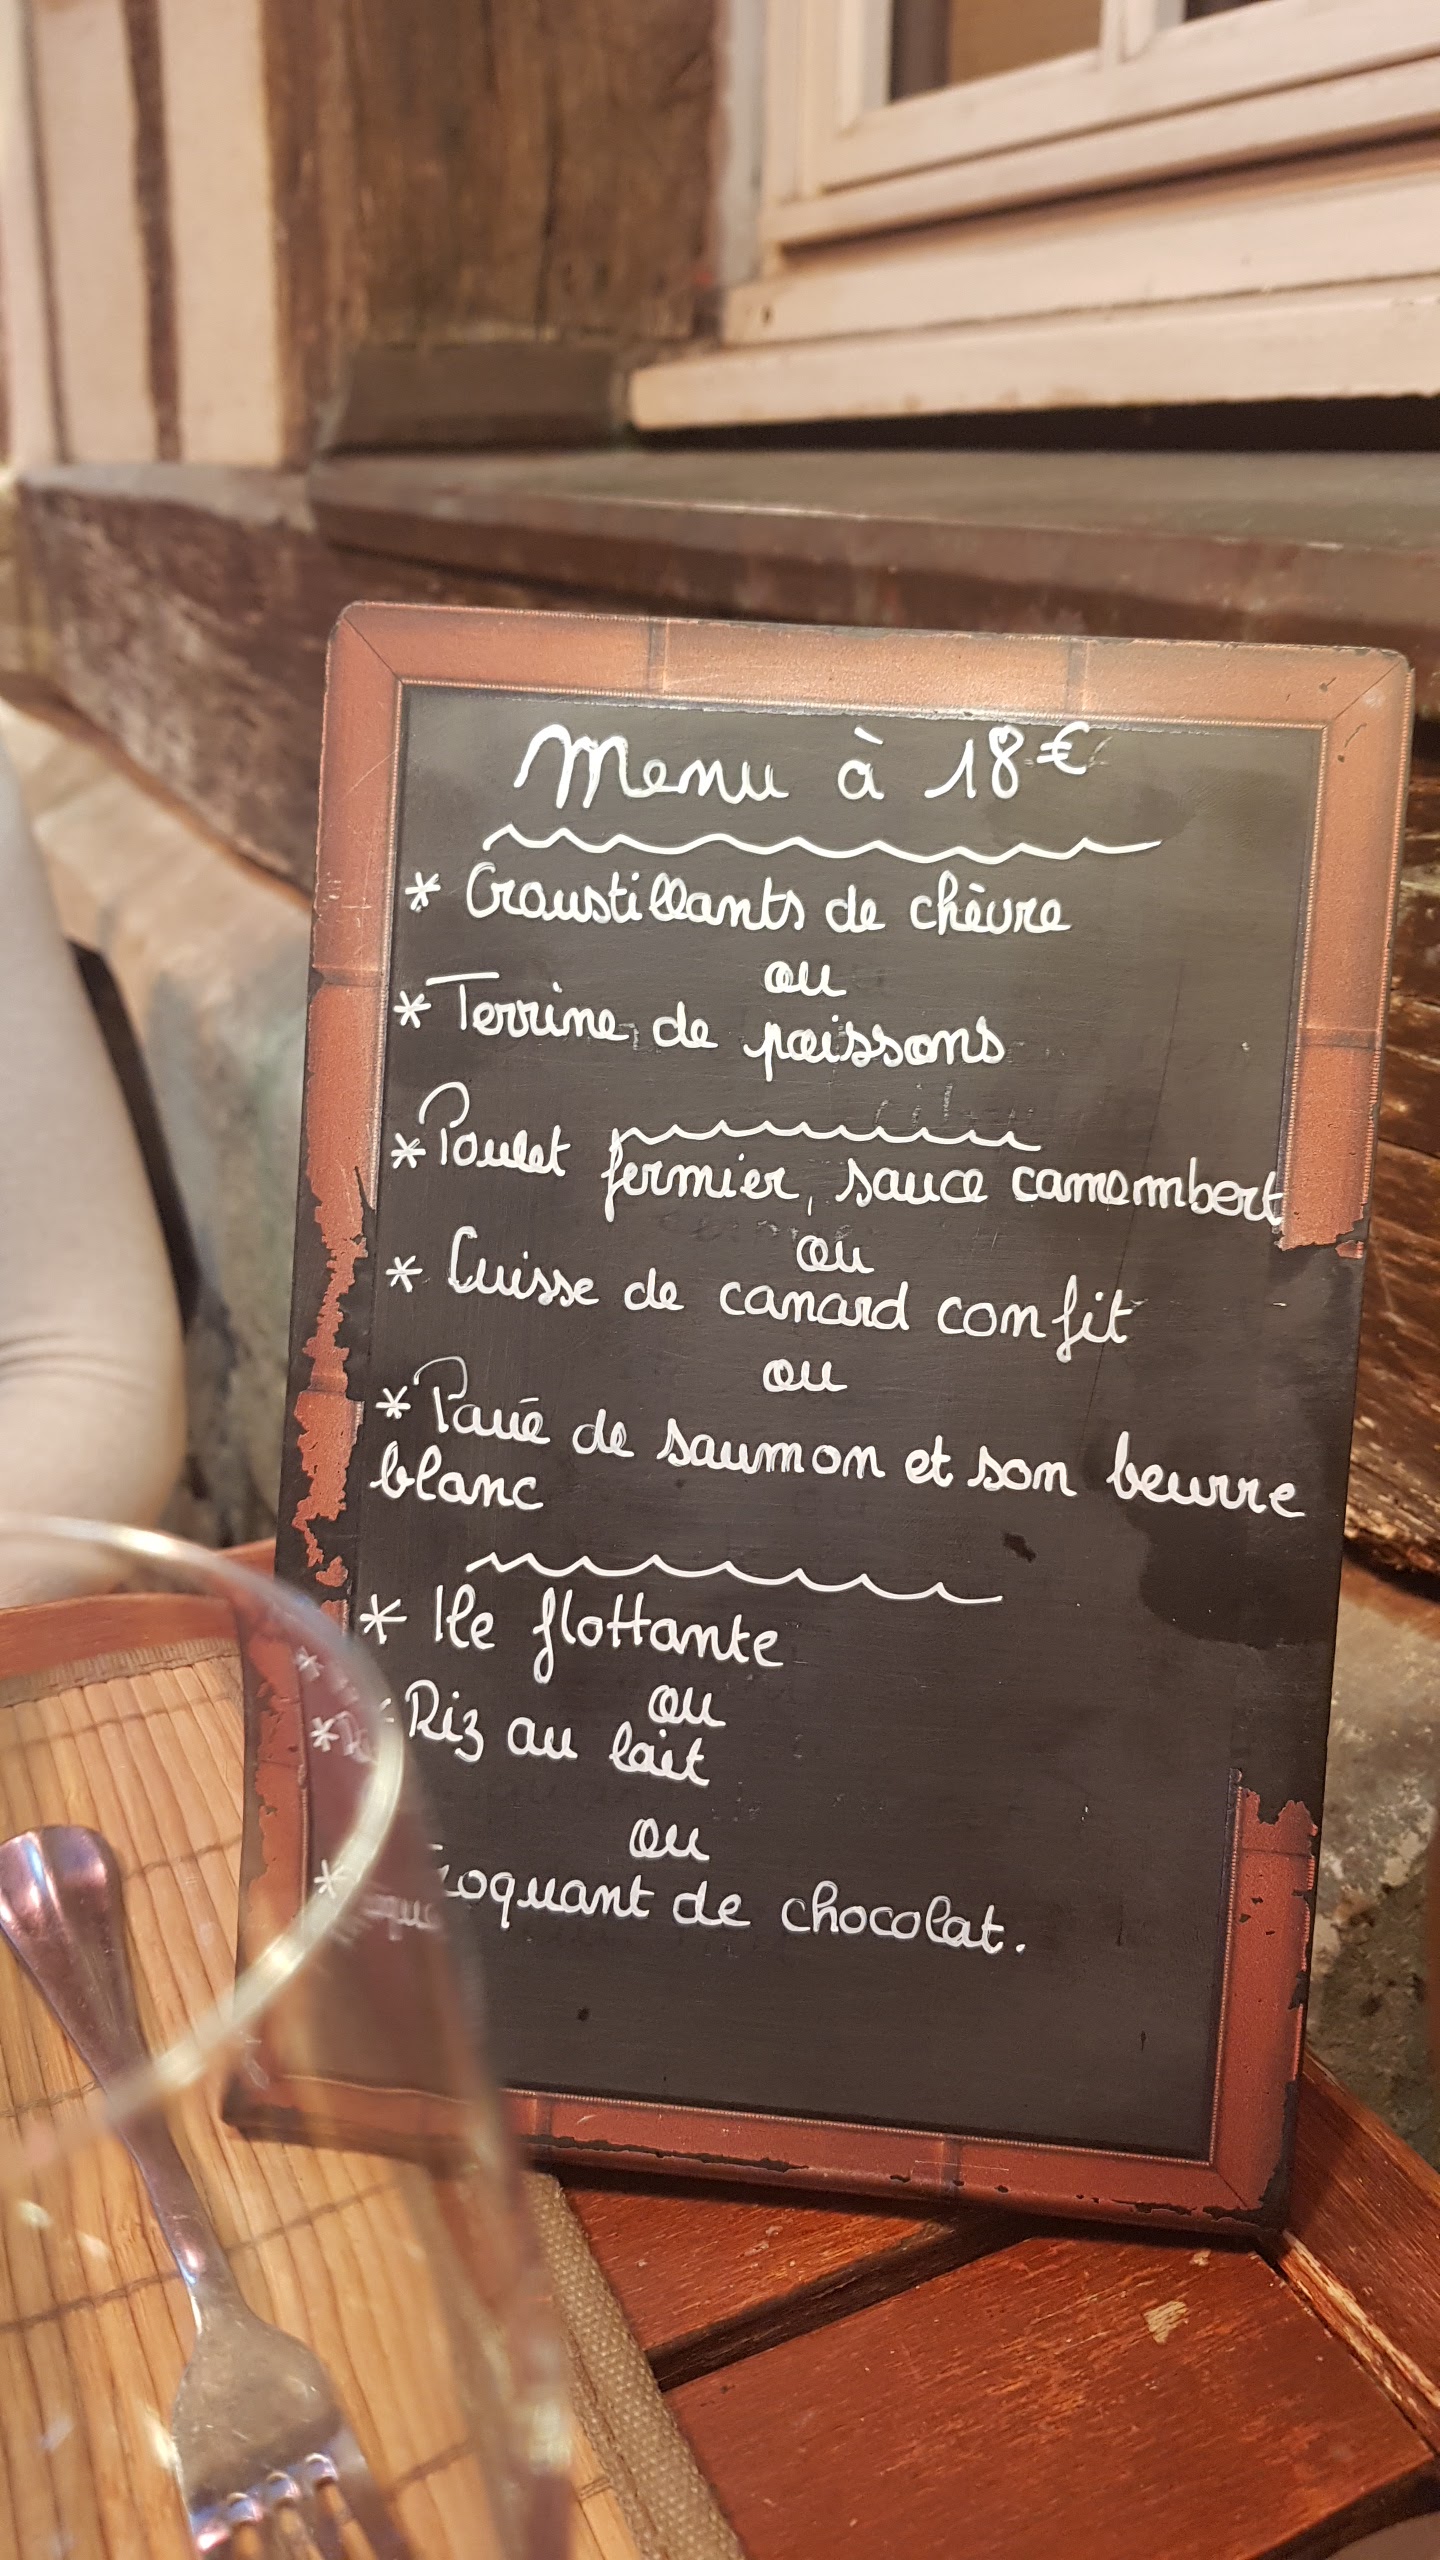 Menu à 18€
* Croustillants de chèvre
ou
* Terrine de poissons
* Poulet fermier, sauce camembert
ou
* Cuisse de canard confit
ou
* Pavé de saumon et son beurre
blanc
* Ile flottante
ou
* Riz au lait
ou
* Croquant de chocolat.